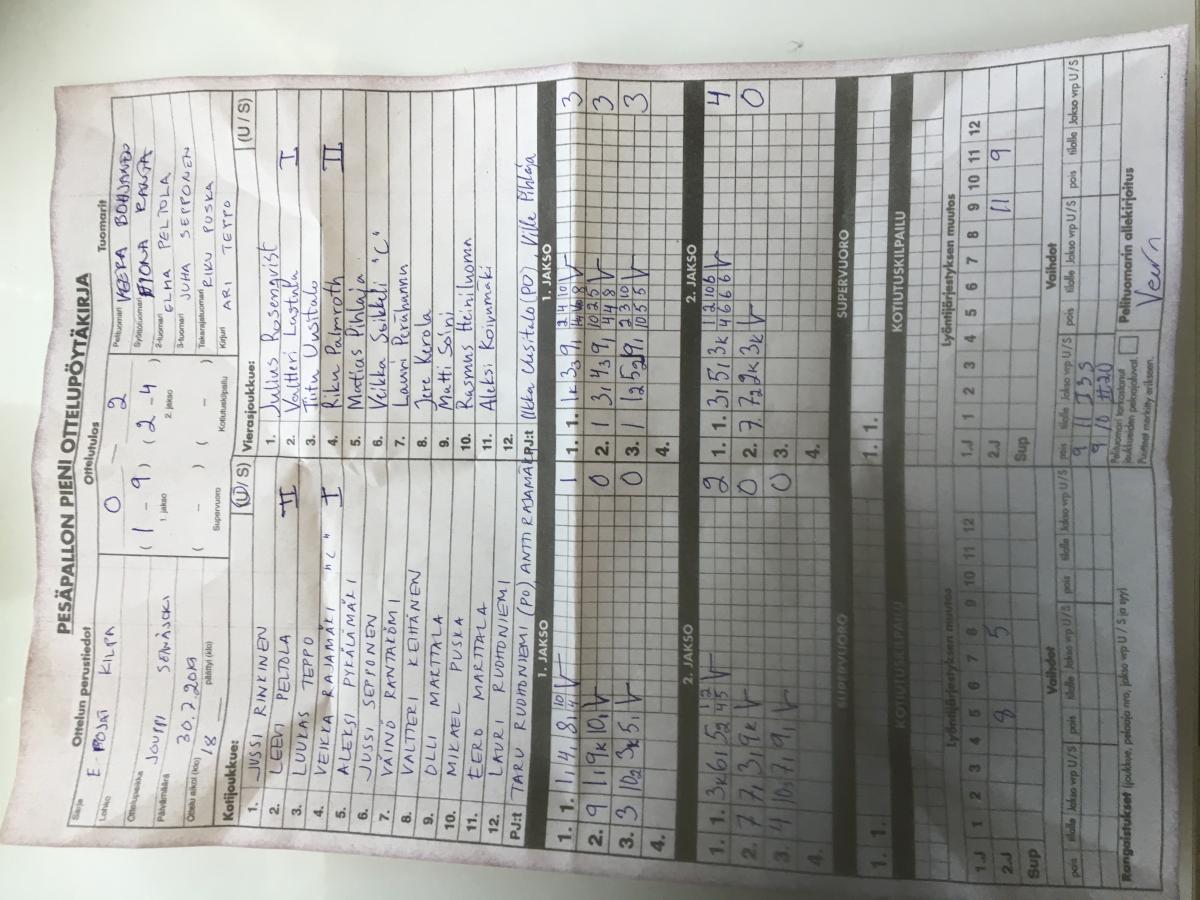 PESÄPALLON PIENI OTTELUPÖYTÄKIRJA
Ottelun perustiedot
Ottelutulos
Tuomarit
Sarja E-POJAT
Lohko KILPA
0 – 2
(1 – 9) (2 – 4)
1. jakso
2. jakso
( – ) ( – )
Supervuoro
Kotiutuskilpailu
Ottelupaikka JOUPPI SEINÄJOKI
Päivämäärä 30.7.2019
Ottelu alkoi (klo) 18
päättyi (klo)
Pelituomari VEERA
Syöttötuomari RANTA
2-tuomari ELMA PELTOLA
3-tuomari JUHA SEPPONEN
Takarajatuomari RIKU PUSKA
Kirjuri ARI TEPPO
Kotijoukkue: (U / S)
1. JUSSI RINKINEN
2. LEEVI PELTOLA II
3. LUUKAS TEPPO
4. VEIKKA RAJAMÄKI "C"
5. ALEKSI PYKÄLÄMÄKI I
6. JUSSI SEPPONEN
7. VÄINÖ RANTAKÖMI
8. VALTTERI KEHTÄNEN
9. OLLI MARTTALA
10. MIKAEL PUSKA
11. EERO MARTTALA
12. LAURI RUOHONIEMI
PJ:t TARU RUOHONIEMI (PO), ANTTI RAJAMÄKI
Vierasjoukkue: (U / S)
1. Julius Rosenqvist
2. Valtteri Lastula I
3. Tiitu Uusitalo
4. Riku Palmroth II
5. Matius Pihlaja
6. Veikka Seikkeli "C"
7. Lauri Perähannu
8. Jere Kerola
9. Matti Soini
10. Rasmus Heiniluoma
11. Aleksi Koivumäki
12.
PJ:t Ilkka Uusitalo (PO), Ville Pihlaja
1. JAKSO
1. 1. 1 4 8 10 V 1
2. 9 1 9K 10 V 0
3. 3 10 3K 5 V 0
4.
1. JAKSO
1. 1. 1K 3 9 V 3
2. 1 3 4 9 V 3
3. 1 2 5 9 V 3
4.
2. JAKSO
1. 1. 3K 6 5 V 2
2. 7 7 3 9K V 0
3. 4 10 7 9 V 0
4.
2. JAKSO
1. 1. 3 5 3K V 4
2. 7 7 9K 3K V 0
3.
4.
SUPERVUORO
1. 1.
SUPERVUORO
1. 1.
KOTIUTUSKILPAILU
KOTIUTUSKILPAILU
Lyöntijärjestyksen muutos
1.J 1 2 3 4 5 6 7 8 9 10 11 12
2.J 8 5
Sup
Lyöntijärjestyksen muutos
1.J 1 2 3 4 5 6 7 8 9 10 11 12
2.J 11 9
Sup
Vaihdot
pois tilalle Jakso vrp U / S pois tilalle Jakso vrp U / S
Vaihdot
pois tilalle Jakso vrp U / S pois tilalle Jakso vrp U / S
9 11
9 10
Rangaistukset (joukkue, pelaaja nro, jakso vrp U / S ja syy)
Pelituomari tarkastanut
joukkueiden pelaajaluvat.
Puutteet merkitty erikseen.
Pelituomarin allekirjoitus
Veera